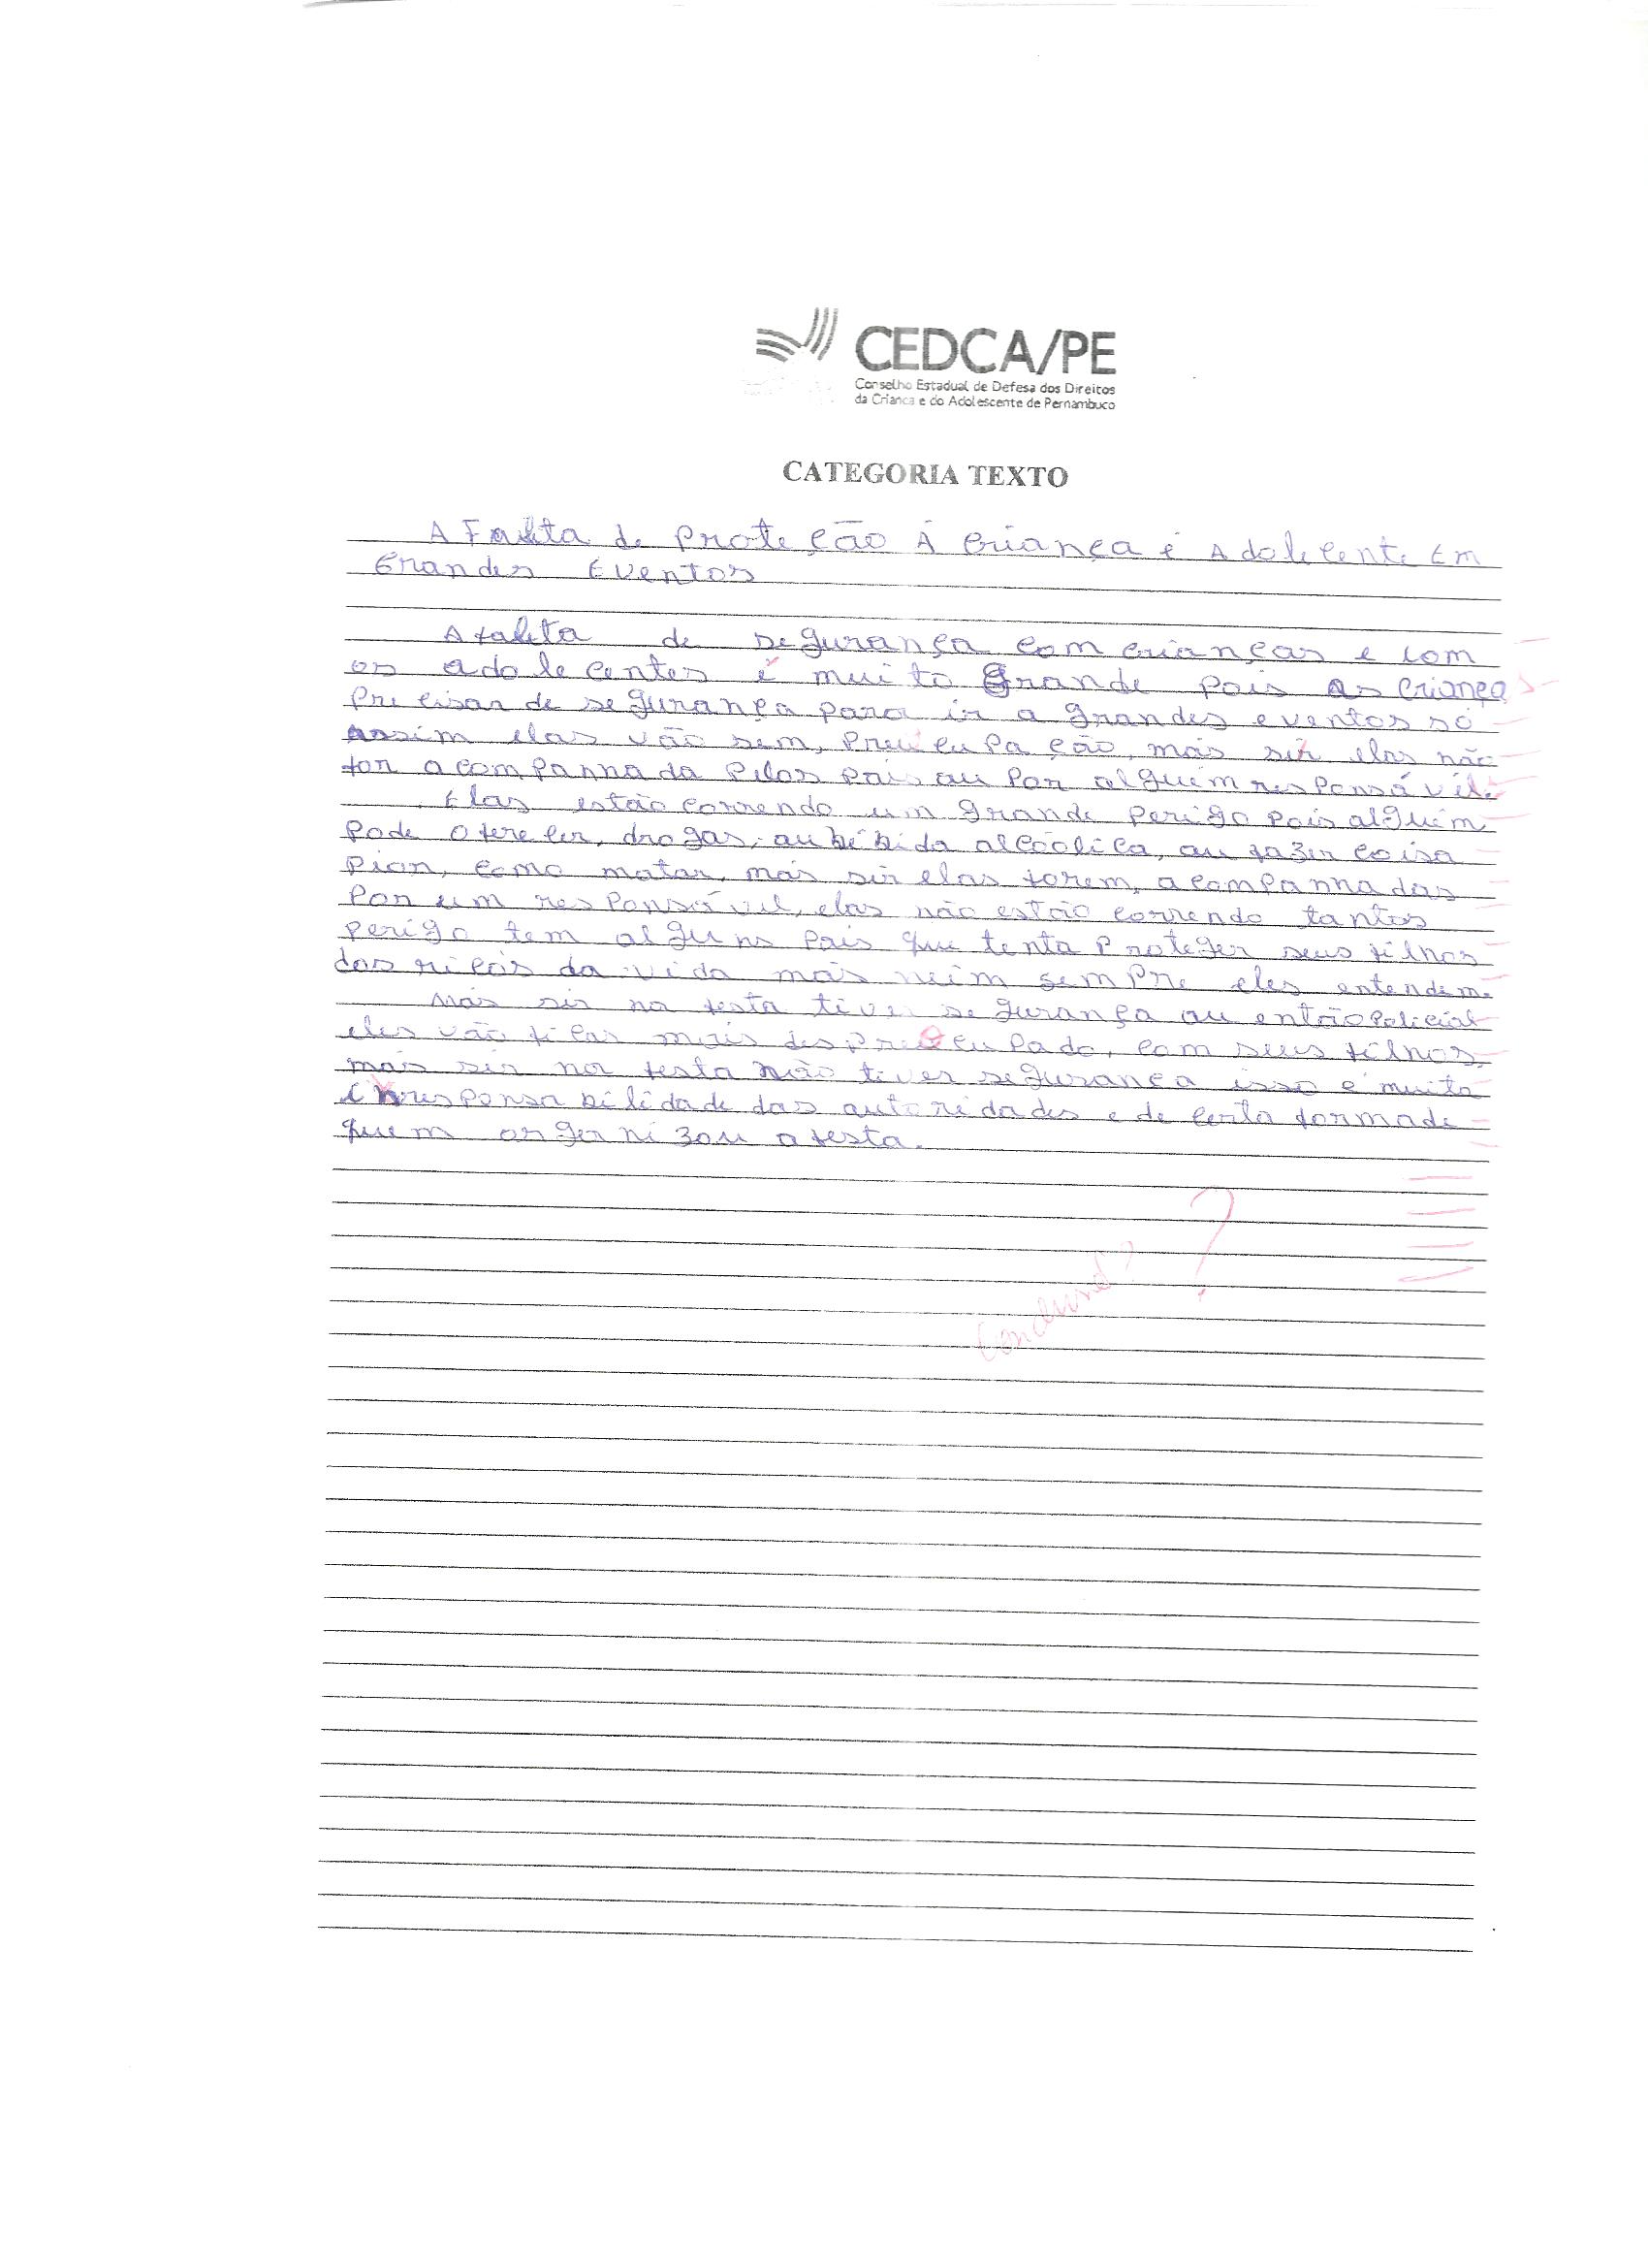 CEDCA/PE
Conselho Estadual de Defesa dos Direitos
da Criança e do Adolescente de Pernambuco
CATEGORIA TEXTO
A Falta de Proteção A Criança é Adolecente Em
Grandes Eventos
A falta de segurança com crianças e com
os adolecentes é muito Grande pois as criança
precisar de segurança para ir a grandes eventos só
assim elas vão sem, preucupação, mais sir elas não
for acompanhada pelos pais ou por alguém responsável.
Elas estão correndo um grande perigo pois alguém
pode oferecer, drogas, ou bebida alcóolica, ou fazer coisa
pior, como matar, mais sir elas forem, acompanhadas
por um responsável, elas não estão correndo tantos
perigo tem alguns pais que tenta proteger seus filhos
dos riços da vida mais neim sempre eles entendem.
Mais sir na festa tiver segurança ou então policial
eles vão ficar mais despreocupado, com seus filhos,
mais sir na festa não tiver segurança isso é muita
irresponsabilidade das autoridades e de certa forma de
quem orgernizou a festa.
?